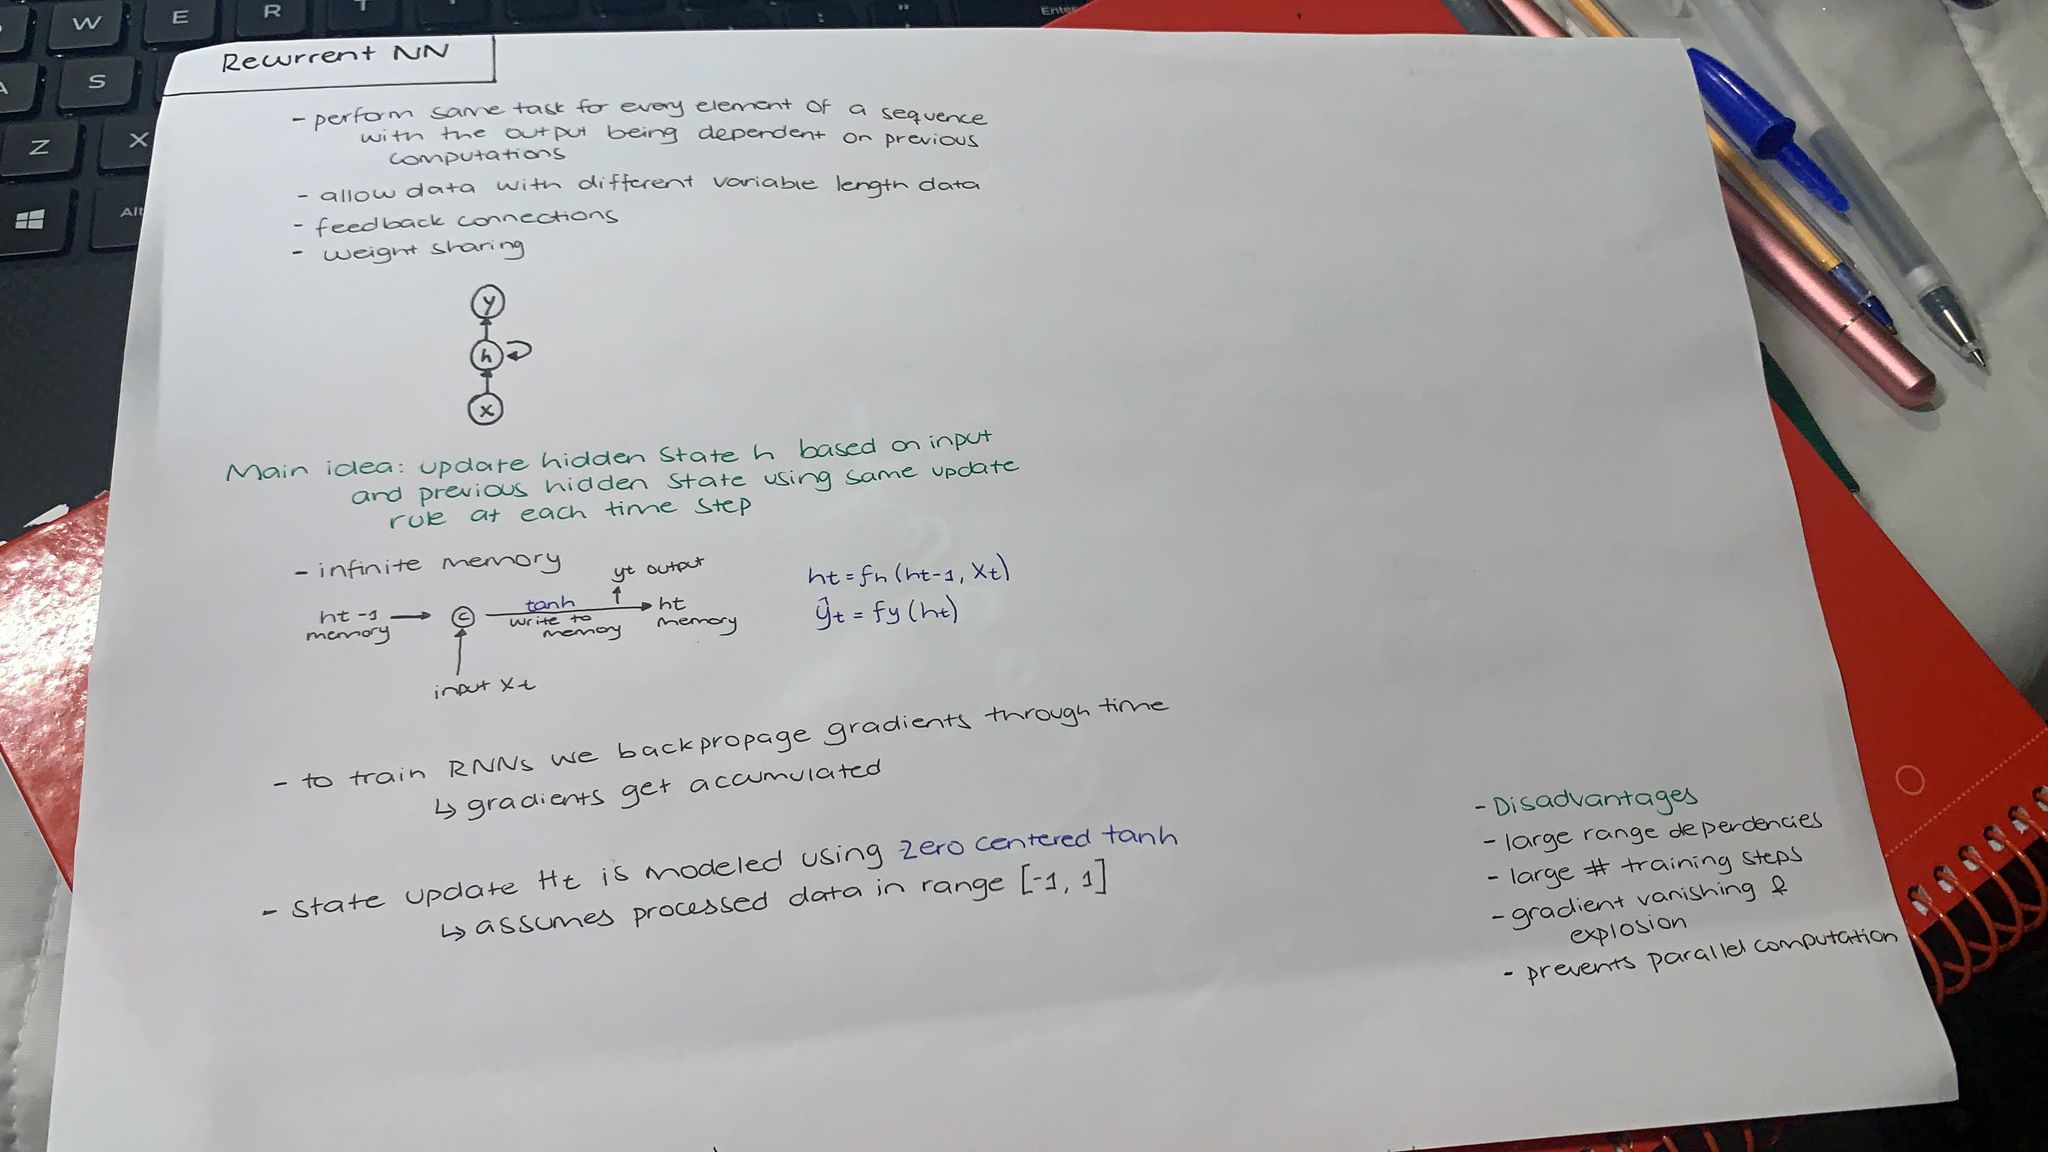 W E R T
A S
Z X
Alt
Enter
Recurrent NN
- perform same task for every element of a sequence
with the output being dependent on previous
computations
- allow data with different variable length data
- feedback connections
- weight sharing
y
h
x
Main idea: update hidden state h based on input
and previous hidden state using same update
rule at each time step
- infinite memory
yt output
ht-1 tanh ht
memory C write to memory
memory
input xt
ht = fh (ht-1, xt)
ŷt = fy (ht)
- to train RNNs we backpropage gradients through time
↳ gradients get accumulated
- State update Ht is modeled using zero centered tanh
↳ assumes processed data in range [-1, 1]
- Disadvantages
- large range deperdencies
- large # training steps
- gradient vanishing &
explosion
- prevents parallel computation